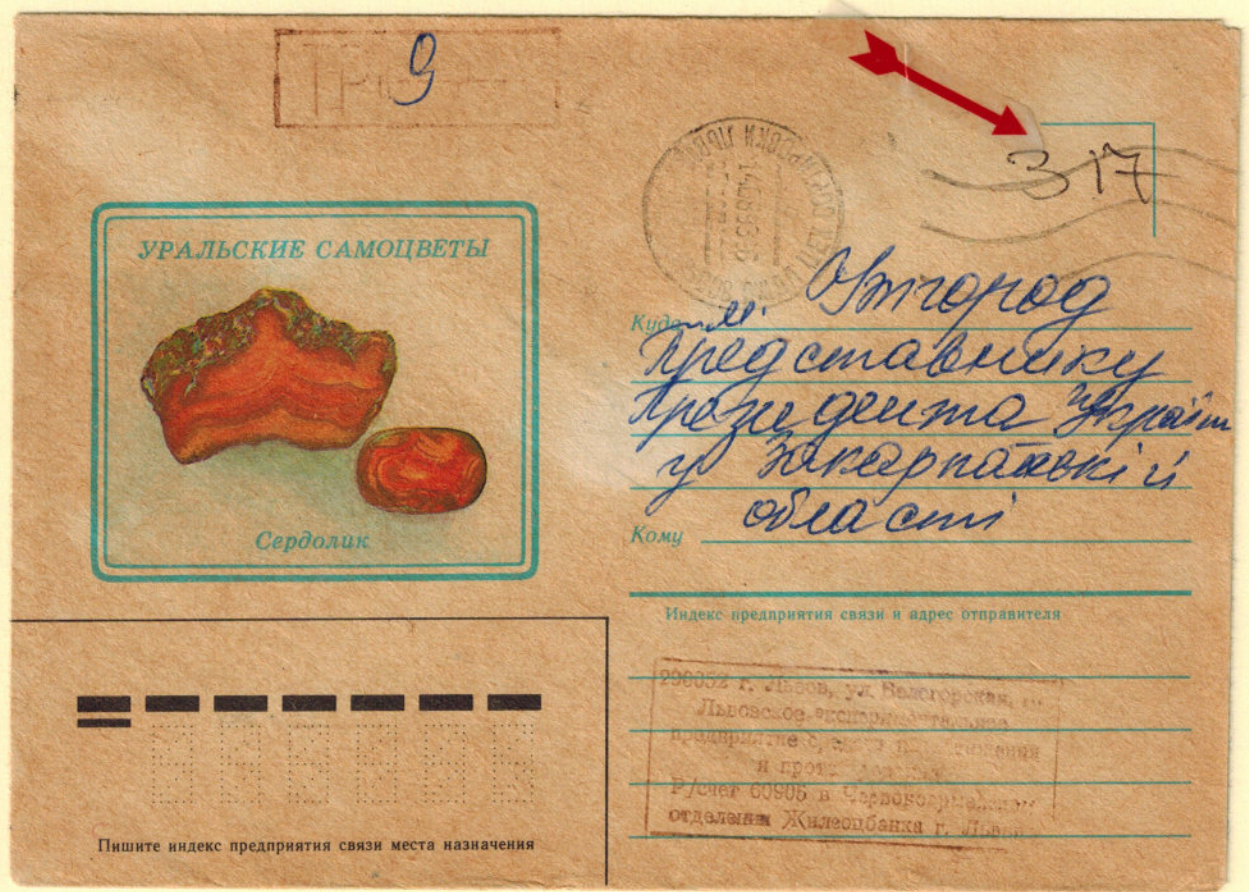 9
3 17
УРАЛЬСКИЕ САМОЦВЕТЫ
Сердолик
Куда
м. Ужгород
Представнику
Президента України
у Закарпатській
області
Кому
Индекс предприятия связи и адрес отправителя
290052 г. Львов, ул.
Львовское экспериментальное
предприятие
и
Р/счет 60905 в
отделении Жилсоцбанка г.
Пишите индекс предприятия связи места назначения